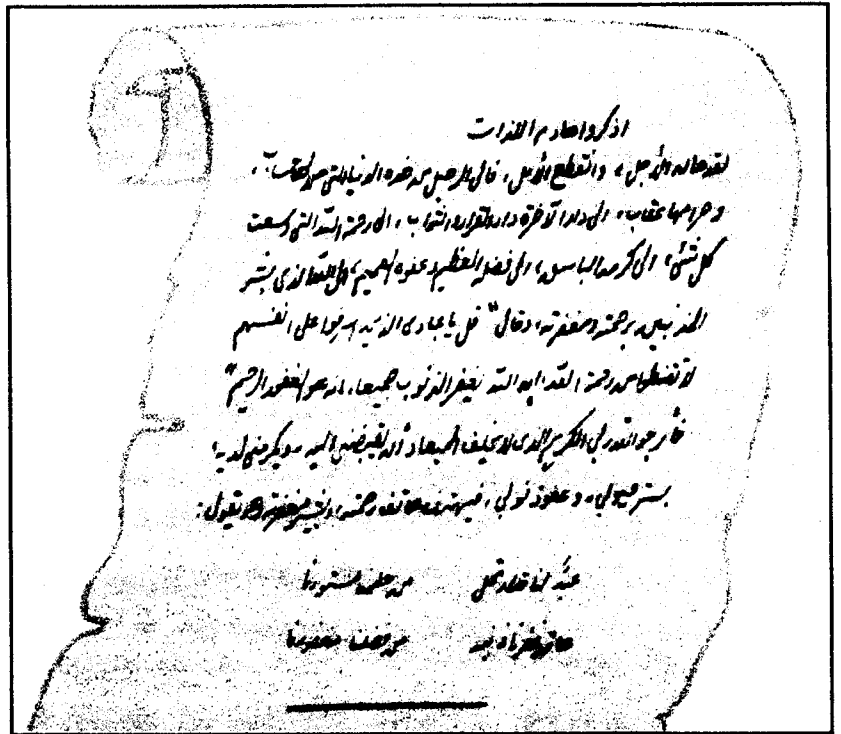 اذكروا هادم اللذات
لقد حان الأجل، وانقطع الأمل، فالى الرحيل من هذه الدنيا التي
وحرامها عقاب، الى دار الآخرة دار القرار، الى رحمة الله التي وسعت
كل شئ، الى فضله العظيم وعفوه العميم، الذي بشر
المذنبين برحمته ومغفرته، وقال "قل يا عبادى الذين اسرفوا على انفسهم
لا تقنطوا من رحمة الله، ان الله يغفر الذنوب جميعا، انه هو الغفور الرحيم"
فأرجو الله ربي الكريم الذى لا يخلف الميعاد أن يقبضنى اليه، ويكرمنى لديه
بستر عيوبي، وعفو ذنوبي، فيهتف هاتف رحمته، وهو يقول:
مستورنا